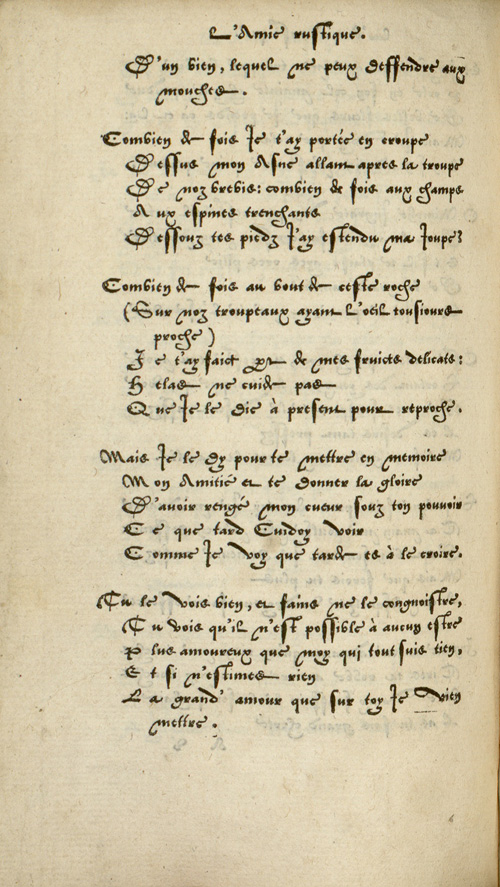 L'Amie rustique.
D'un bien, lequel ne peux deffendre aux
mouches.
Combien de fois Je t'ay portée en croupe
Dessus mon Asne allant apres la troupe
De noz brebis: combien de fois aux champs
Aux espines trenchants
Dessouz tes piedz J'ay estendu ma Joupe?
Combien de fois au bout de ceste roche
(Sur noz troupeaux ayant l'oeil tousiours
proche)
Je t'ay faict de mes fruictz delicats:
Helas ne cuide pas
Que Je le die à present pour reproche.
Mais Je le dy pour te mettre en memoire
Mon Amitié et te donner la gloire
D'avoir rengé mon cueur souz ton pouvoir
Ce que tard Cuidoy voir
Comme Je voy que tarde es à le croire.
Tu le vois bien, et fains ne le congnoistre,
Tu vois qu'il n'est possible à aucun estre
Plus amoureux que moy qui tout suis tien,
Et si n'estimes rien
La grand' amour que sur toy Je vien
mettre.